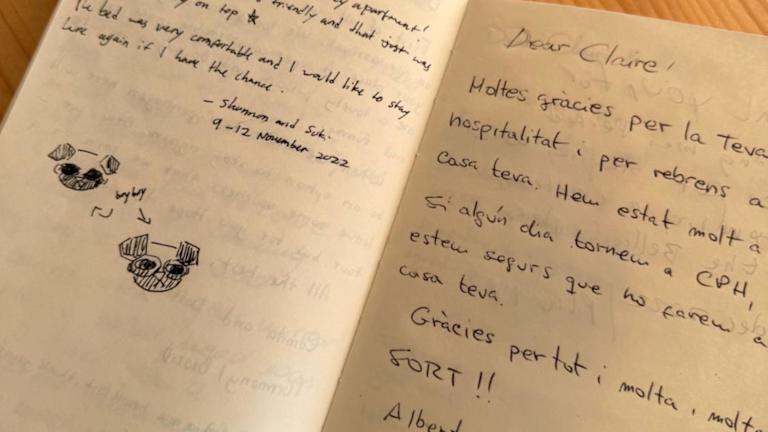 y apartment!
y on top
friendly and that just was
The bed was very comfortable and I would like to stay
here again if I have the chance.
– Shannon and Suki
9–12 November 2022
bry bry
Dear Claire!
Moltes gràcies per la Teva
hospitalitat i per rebrens a
casa teva. Hem estat molt a
Si algún dia tornem a CPH,
estem segurs que ho farem a
casa teva.
Gràcies per tot i molta, molt
SORT !!
Albert